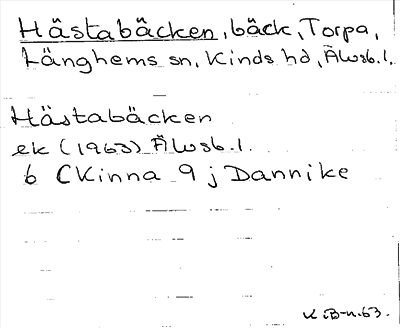 Hästabäcken, bäck, Torpa,
Länghems sn, Kinds hd, Älvsb. l.
Hästabäcken
ek (1963) Älvsb. l.
6 C Kinna 9 j Dannike
K. B-n. 63.